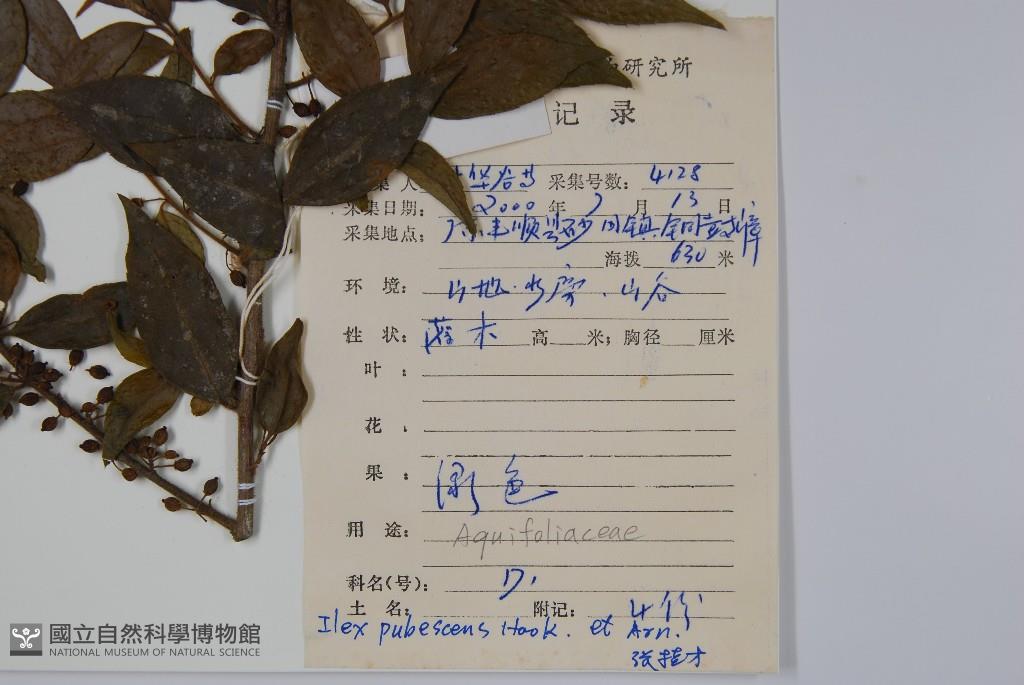 研究所
记 录
人 采集号数: 4128
采集日期: 2000 年 7 月 13 日
采集地点: 丰顺县砂田镇
海拨 630 米
环 境: 山地.水旁、山谷
性 状: 灌木 高 米; 胸径 厘米
叶 :
花 .
果 : 绿色
用 途: Aquifoliaceae
科名(号): 17.
土 名: 附记: 4份
Ilex pubescens Hook. et Arn.
张桂才
國立自然科學博物館
NATIONAL MUSEUM OF NATURAL SCIENCE